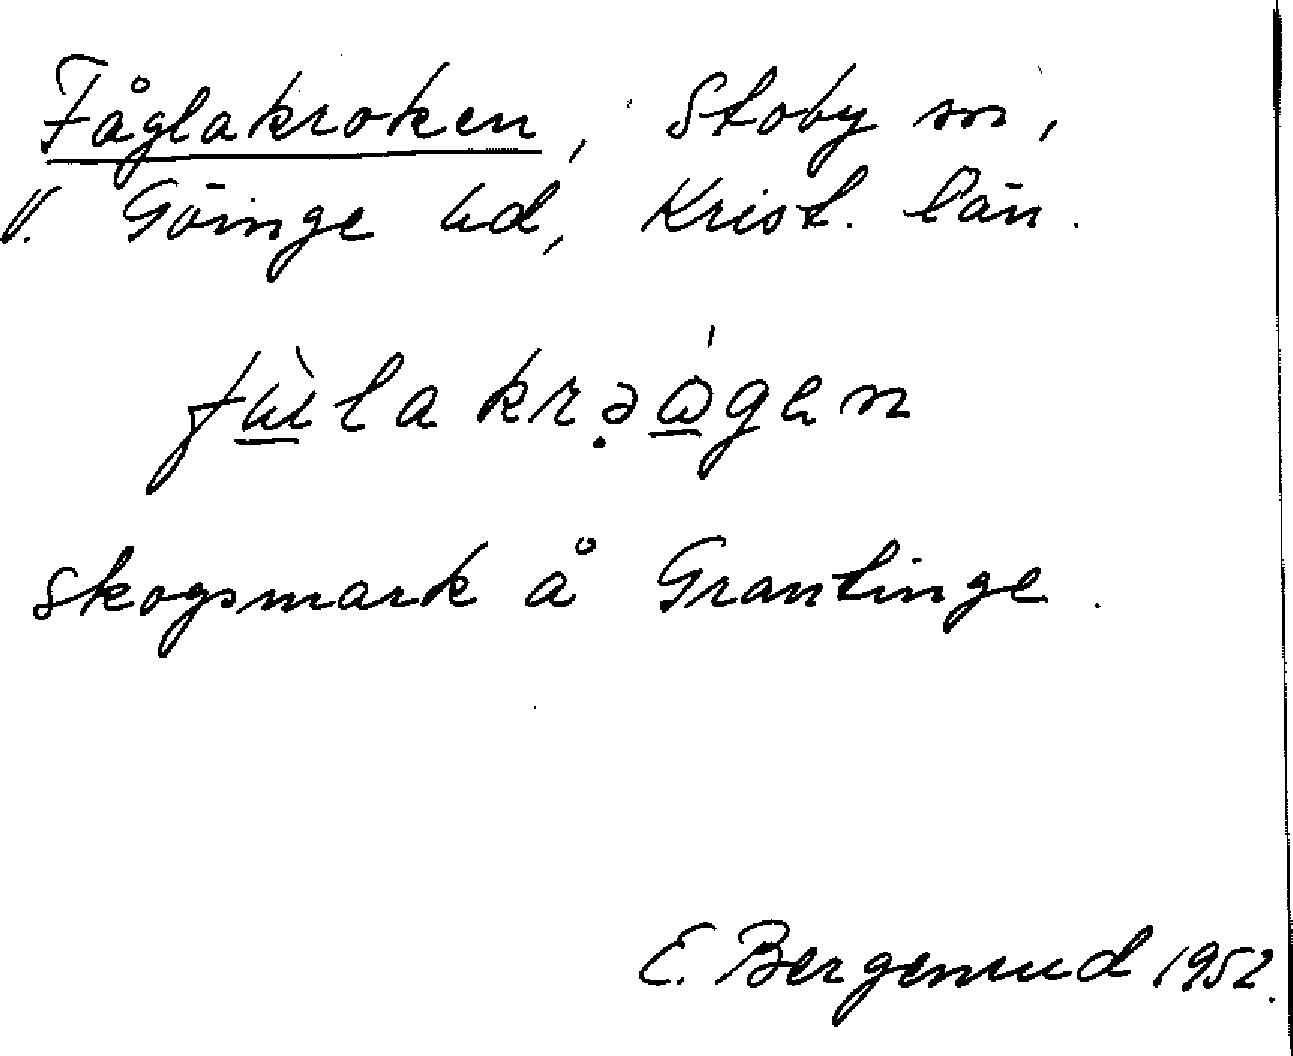 Fåglakroken, Stoby sn,
V. Göinge hd, Krist. län.
skogsmark å Grantinge.
E. Bergenrud 1952.